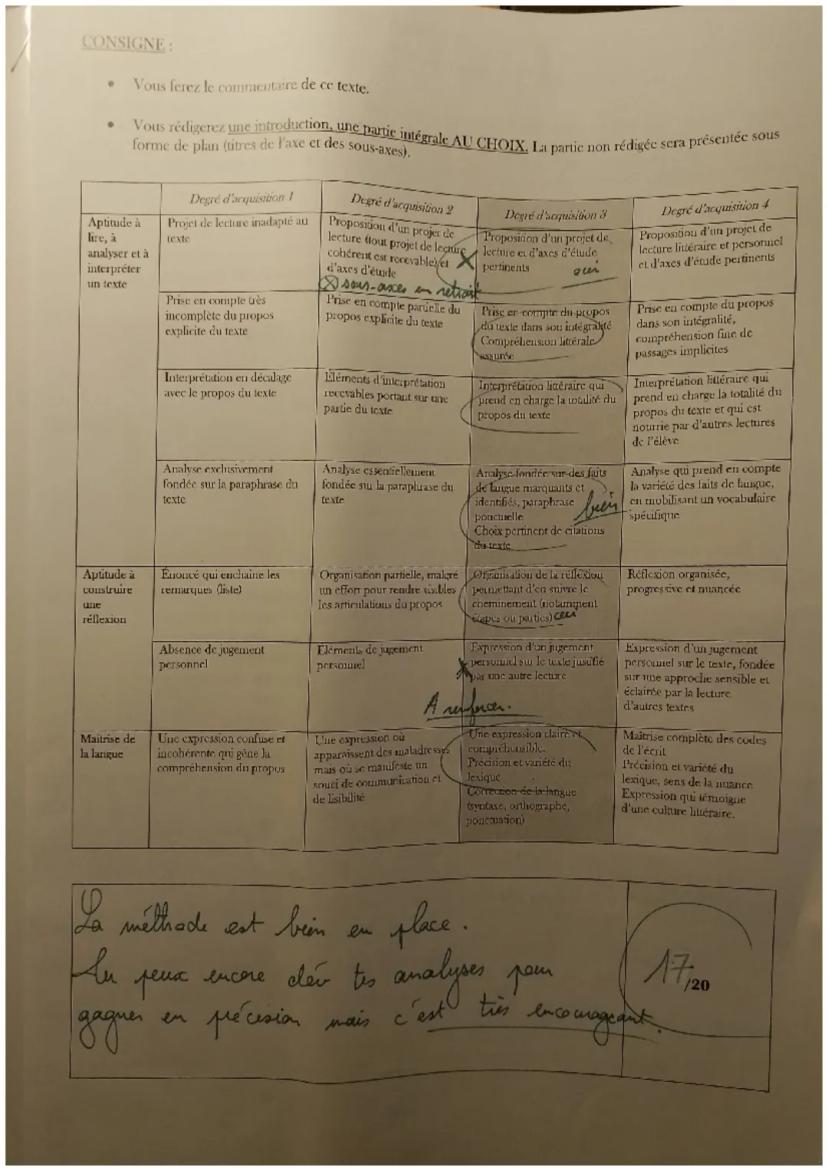 CONSIGNE :
• Vous ferez le commentaire de ce texte.
• Vous rédigerez une introduction, une partie intégrale AU CHOIX. La partie non rédigée sera présentée sous
forme de plan (titres de l'axe et des sous-axes).
Degré d'acquisition 1
Degré d'acquisition 2
Degré d'acquisition 3
Degré d'acquisition 4
Aptitude à
lire, à
analyser et à
interpréter
un texte
Projet de lecture inadapté au
texte
Proposition d'un projet de
lecture (tout projet de lecture
cohérent est recevable) et
d'axes d'étude
⊗ sous-axes en retrait
Proposition d'un projet de
lecture et d'axes d'étude
pertinents
oui
Proposition d'un projet de
lecture littéraire et personnel
et d'axes d'étude pertinents
Prise en compte très
incomplète du propos
explicite du texte
Prise en compte partielle du
propos explicite du texte
Prise en compte du propos
du texte dans son intégralité
Compréhension littérale
assurée
Prise en compte du propos
dans son intégralité,
compréhension fine de
passages implicites
Interprétation en décalage
avec le propos du texte
Eléments d'interprétation
recevables portant sur une
partie du texte
Interprétation littéraire qui
prend en charge la totalité du
propos du texte
Interprétation littéraire qui
prend en charge la totalité du
propos du texte et qui est
nourrie par d'autres lectures
de l'élève
Analyse exclusivement
fondée sur la paraphrase du
texte
Analyse essentiellement
fondée sur la paraphrase du
texte
Analyse fondée sur des faits
de langue marquants et
identifiés, paraphrase
ponctuelle
Choix pertinent de citations
du texte
bien
Analyse qui prend en compte
la variété des faits de langue,
en mobilisant un vocabulaire
spécifique
Aptitude à
construire
une
réflexion
Énoncé qui enchaîne les
remarques (liste)
Organisation partielle, malgré
un effort pour rendre visibles
les articulations du propos
Organisation de la réflexion
permettant d'en suivre le
cheminement (notamment
étapes ou parties)
oui
Réflexion organisée,
progressive et nuancée
Absence de jugement
personnel
Eléments de jugement
personnel
A renforcer.
Expression d'un jugement
personnel sur le texte justifié
par une autre lecture
Expression d'un jugement
personnel sur le texte, fondée
sur une approche sensible et
éclairée par la lecture
d'autres textes
Maîtrise de
la langue
Une expression confuse et
incohérente qui gêne la
compréhension du propos
Une expression où
apparaissent des maladresses
mais où se manifeste un
souci de communication et
de lisibilité
Une expression claire et
compréhensible.
Précision et variété du
lexique
Correction de la langue
(syntaxe, orthographe,
ponctuation)
Maîtrise complète des codes
de l'écrit
Précision et variété du
lexique, sens de la nuance
Expression qui témoigne
d'une culture littéraire.
La méthode est bien en place.
Tu peux encore tes analyses pour
gagner en précision mais c'est très encourageant.
17/20